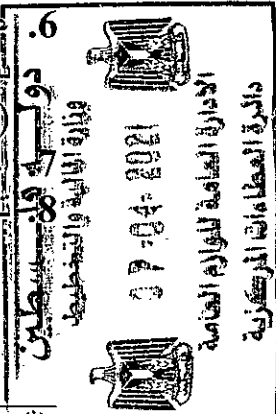 .6
دولة فلسطين
وزارة المالية والتخطيط
07-04-2021
الادارة العامة للوازم العامة
دائرة العطاءات المركزية